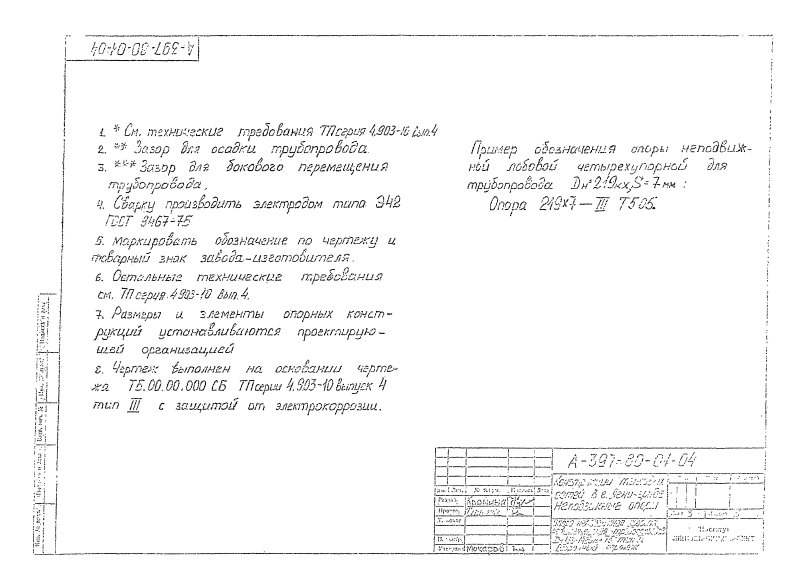 А-397-80-01-04
1. * См. технические требования ТП серия 4.903-10 вып.4
2. ** Зазор для осадки трубопровода.
3. *** Зазор для бокового перемещения
трубопровода.
4. Сварку производить электродом типа Э42
ГОСТ 9467-75
5. Маркировать обозначение по чертежу и
товарный знак завода-изготовителя.
6. Остальные технические требования
см. ТП серия 4.903-10 вып.4.
7. Размеры и элементы опорных конст-
рукций устанавливаются проектирую-
щей организацией
8. Чертеж выполнен на основании черте-
жа ТБ.00.00.000 СБ ТП серии 4.903-10 выпуск 4
тип III с защитой от электрокоррозии.
Пример обозначения опоры неподвиж-
ной лобовой четырехупорной для
трубопровода Dн=219мм, S=7мм:
Опора 219×7 — III Т5.05.
А-397-80-01-04
сетей в г.
Неподвижные опоры